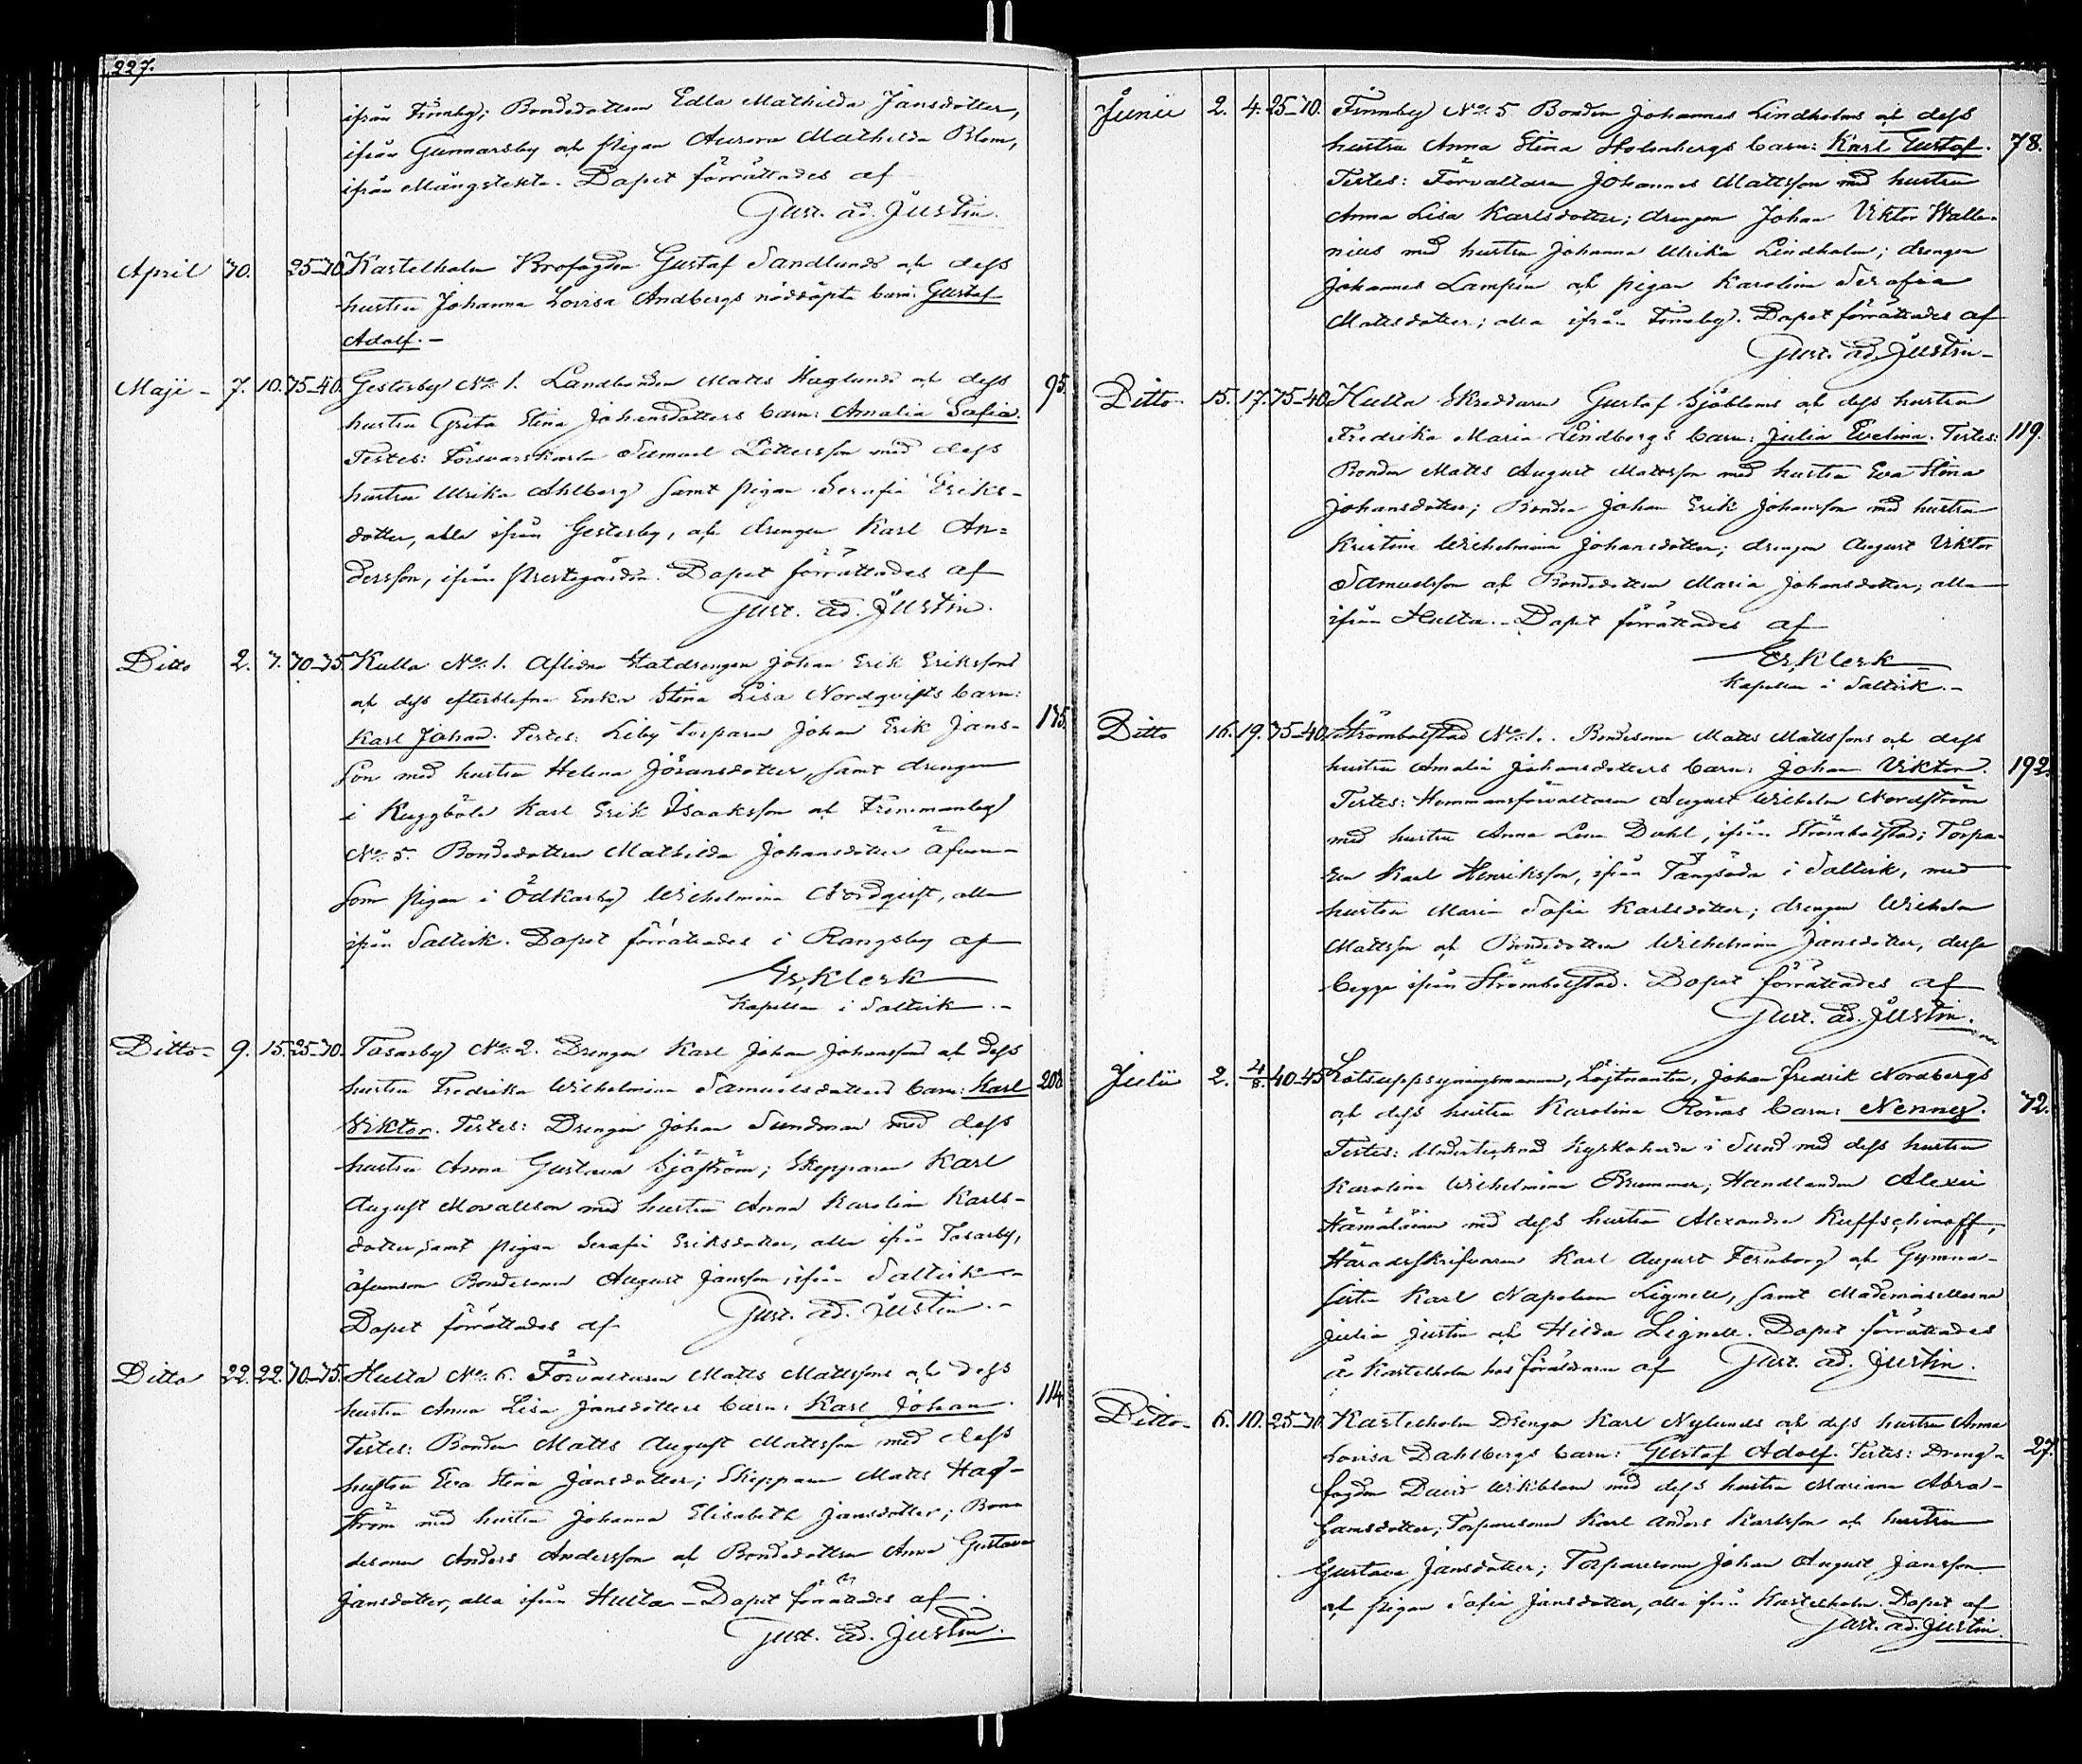 227.
ifrån Finnby; Bondedottren Edla Mathilda Jansdotter,
ifrån Gunnarsby och pigan Aurora Mathilda Blom,
ifrån Mångstekta. Dopet förrättades af
Gust. Ad. Justin.
April 30. 25-30 Kastelholm Brofogden Gustaf Sandlunds och dess
hustru Johanna Lovisa Andbergs nöddöpta barn: Gustaf
Adolf. -
Maji - 7. 10. 35-40. Gesterby No: 1. Landbonden Matts Haglunds och dess 95.
hustru Greta Stina Johansdotters barn: Amalia Sofia.
Testes: Försvarskarlen Samuel med dess
hustru Ulrika Ahlberg samt pigan Serafia Eriks-
dotter, alla ifrån Gesterby, och drengen Karl An=
dersson, ifrån Prestegården. Dopet förrättades af
Gust. Ad. Justin.
Ditto 2. 7. 30-35. Kulla No: 1. Aflidne Statdrengen Johan Erik Erikssons
och dess efterblefne Enka Stina Lisa Nordqvists barn:
Karl Johan. Testes: Liby Torparen Johan Erik Jans- 135.
son med hustru Helena Jöransdotter, samt drengen
i Kuggböle Karl Erik Isaksson och Fremmanby
No: 5. Bondedottren Mathilda Johansdotter äfven-
som pigan i Ödkarby Wilhelmina Nordqvist, alla
ifrån Saltvik. Dopet förrättades i Rangsby af
Er. Klerk
Kapellan i Saltvik. -
Ditto - 9. 15. 25-30. Tosarby No: 2. Drengen Karl Johan Johanssons och dess
hustru Fredrika Wilhelmina Samuelsdotters barn: Karl 208
Viktor. Testes: Drengen Johan Sundman med dess
hustru Anna Gustava Sjöström; Skepparen Karl
August med hustru Anna Karolina Karls-
dotter, samt pigan Serafia Eriksdotter, alla ifrån Tosarby,
äfvensom Bondesonen August Jansson, ifrån Saltvik -
Dopet förrättades af Gust. Ad. Justin. -
Ditto 22. 22. 30-35. Hulta No: 6. Förvaltaren Matts Mattssons och dess
hustru Anna Lisa Jansdotters barn: Karl Johan. 114
Testes: Bonden Matts August Mattsson med dess
hustru Eva Stina Jansdotter; Skepparen Matts Hag-
ström med hustru Johanna Elisabeth Jansdotter; Bon-
desonen Anders Andersson och Bondedottren Anna Gustava
Jansdotter, alla ifrån Hulta - Dopet förrättades af.
Gust. Ad. Justin.
Junii 2. 4. 25-30. Finnby No: 5 Bonden Johannes Lindholms och dess
hustru Anna Stina Holmbergs barn: Karl Gustaf. 78.
Testes: Förvaltaren Johannes Mattsson med hustru
Anna Lisa Karlsdotter; drengen Johan Viktor Walle-
nius med hustru Johanna Ulrika Lindholm; drengen
Johannes Lampén och pigan Karolina Serafia
Mattsdotter; alla ifrån Finnby. Dopet förrättades af
Gust. Ad. Justin -
Ditto - 15. 17. 35-40 Hulta Skreddaren Gustaf Sjöbloms och dess hustru
Fredrika Maria Lindbergs barn: Julia Evelina. Testes: 119.
Bonden Matts August Mattsson med hustru Eva Stina
Johansdotter; Bonden Johan Erik Johansson med hustru
Kristina Wilhelmina Johansdotter; drengen August Viktor
Samuelsson och Bondedottren Maria Johansdotter, alla
ifrån Hulta. - Dopet förrättades af
Er. Klerk
Kapellan i Saltvik. -
Ditto 16. 19. 35-40. Strömbolstad No: 1. Bondesonen Matts Mattssons och dess
hustru Amalia Johansdotters barn: Johan Viktor. 192.
Testes: Hemmansförvaltaren August Wilhelm Nordström
med hustru Anna Lena Dahl, ifrån Strömbolstad; Torpa-
ren Karl Henriksson, ifrån Tängsöda i Saltvik, med
hustru Maria Sofia Karlsdotter; drengen Wilhelm
Mattsson och Bondedottren Wilhelmina Jansdotter, desse
begge ifrån Strömbolstad. Dopet förrättades af
Gust. Ad. Justin.
Julii 2. 4/8 40-45 Lotsuppsyningsmannen, Löjtnanten, Johan Fredrik Nordbergs
och dess hustru Karolina Rönns barn: Nenney. 72.
Testes: Undertecknad Kyrkoherde i Sund med dess hustru
Karolina Wilhelmina Brummer; Handlanden Alexei
Hämäläinen med dess hustru Alexandra Kuffschinoff,
Häradsskrifvaren Karl August Fernborg och Gymna-
sisten Karl Napoleon Lignell, samt Mademoisellerna
Julia Justin och Hilda Lignell. Dopet förrättades
å Kastelholm hos föräldrarne af Gust. Ad. Justin.
Ditto - 6. 10. 25-30. Kastelholm Drengen Karl Nylunds och dess hustru Anna
Lovisa Dahlbergs barn: Gustaf Adolf. Testes: Dreng- 27.
fogden David Wikblom med dess hustru Mariana Abra-
hamsdotter; Torparesonen Karl Anders Karlsson och hustru
Gustava Jansdotter; Torparesonen Johan August Jansson
och pigan Sofia Jansdotter, alla ifrån Kastelholm. Dopet af
Gust. Ad. Justin.